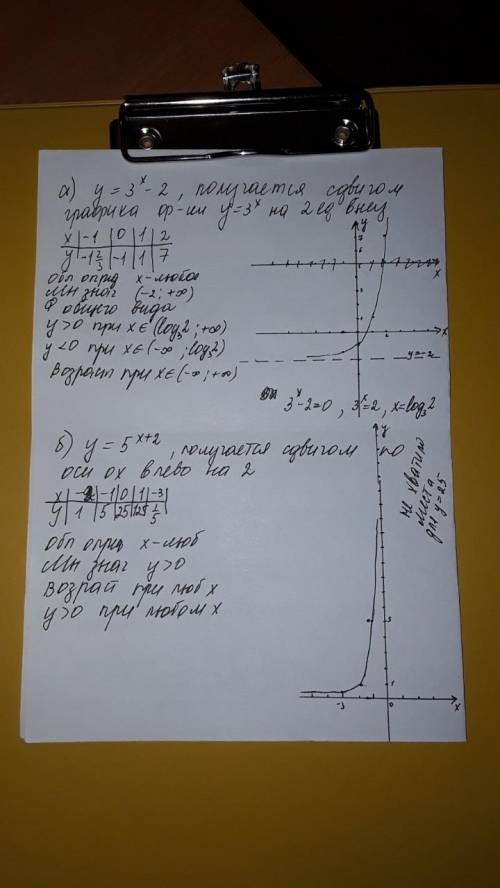 а) y = 3^x - 2, получается сдвигом
графика ф-ии y = 3^x на 2 ед вниз
x | -1 | 0 | 1 | 2
y | -1 2/3 | -1 | 1 | 7
обл опред x - любое
мн знач (-2; +∞)
Ф общего вида
y>0 при x∈(log₃2; +∞)
y<0 при x∈(-∞; log₃2)
возраст при x∈(-∞; +∞)
y
7
x
x
y=-2
3^x-2=0, 3^x=2, x=log₃2
б) y = 5^{x+2}, получается сдвигом по
оси ox влево на 2
x | -2 | -1 | 0 | 1 | -3
y | 1 | 5 | 25 | 125 | 1/5
обл опред x - люб
мн знач y>0
возраст при люб x
y>0 при любом x
y
не хватило
места
для y=25
5
1
-3
0
x